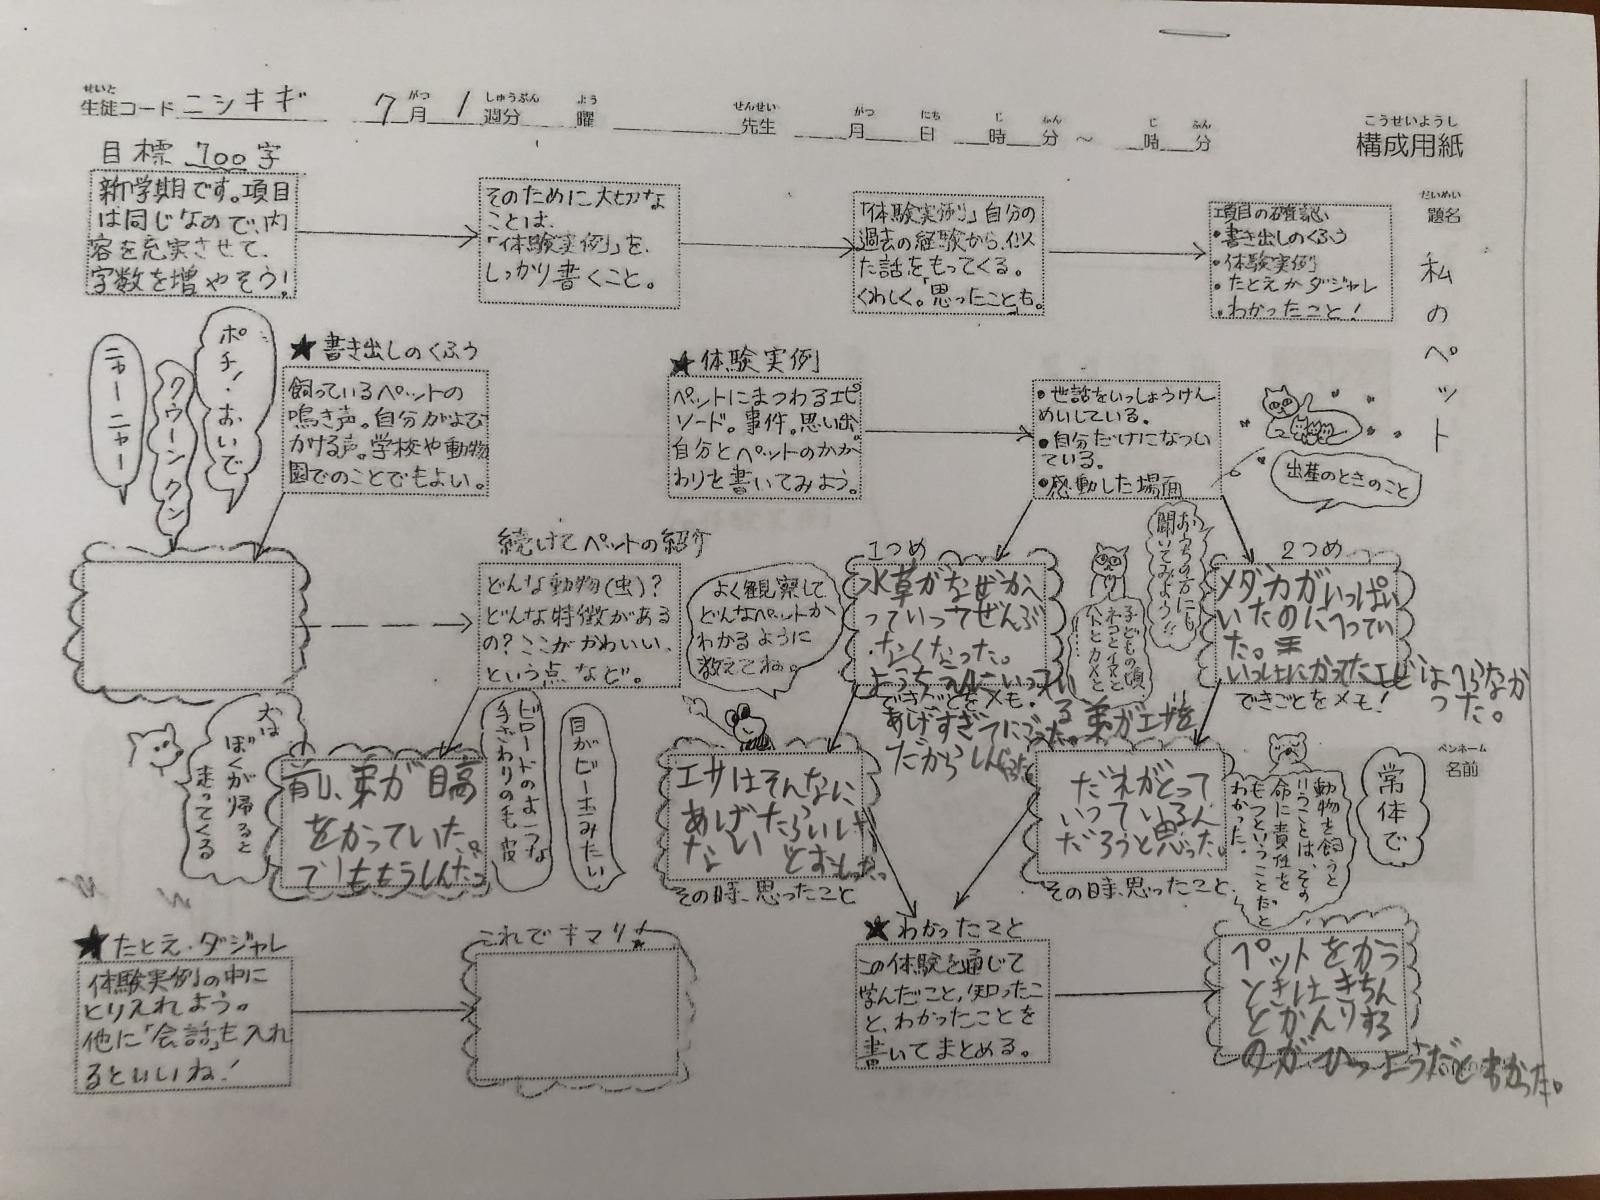 せいと
生徒コード ニシキギ 7月 1週分 曜 先生 月 日 時 分 ～ 時 分
がつ しゅうぶん よう せんせい がつ にち じ ふん じ ふん
こうせいようし
構成用紙
目標 700字
新学期です。項目
は同じなので、内
容を充実させて、
字数を増やそう!
そのために大切な
ことは、
「体験実例」を、
しっかり書くこと。
「体験実例」自分の
過去の経験から、似
た話をもってくる。
くわしく。「思ったことも。」
項目の確認
・書き出しのくふう
・体験実例
・たとえかダジャレ
・わかったこと!
だいめい
題名
私のペット
ポチ!・おいで
クウーンクン
ニャーニャー
★書き出しのくふう
飼っているペットの
鳴き声。自分がよび
かける声。学校や動物
園でのことでもよい。
★体験実例
ペットにまつわるエピ
ソード。事件。思い出。
自分とペットのかか
わりを書いてみよう。
・世話をいっしょうけん
めいしている。
・自分だけになつい
ている。
・感動した場面
出産のときのこと
おうちの方にも
聞いてみよう!!
続けてペットの紹介
どんな動物(虫)?
どんな特徴がある
の?ここがかわいい、
という点など。
よく観察して
どんなペットか
わかるように
教えてね。
1つめ
水草がなぜかへ
っていってぜんぶ
なくなった。
ようちえんにいってい
る弟がエサを
あげすぎてにごった。
だからしんじゃった
できごとをメモ!
子どもの頃
ネコとイヌと
ハトとカメと
…
2つめ
メダカがいっぱい
いたのにへってい
た。
いっしょにかったエビはへらなか
った。
できごとをメモ!
犬は
ぼくが帰ると
走ってくる
前、弟が目高
をかっていた。
でももうしんだ。
ビロードのような
手ざわりの毛皮
目がビー玉みたい
エサはそんなに
あげたらいけ
ない とおもった。
その時、思ったこと
だれがとって
いっているん
だろうと思った。
その時、思ったこと
動物を飼うと
いうことは、その
命に責任を
もつということだと
わかった。
ペンネーム
名前
常体で
★たとえ・ダジャレ
体験実例の中に
とりいれよう。
他に「会話」も入れ
るといいね!
これでキマリ!
★わかったこと
この体験を通じて
学んだこと、知ったこ
と、わかったことを
書いてまとめる。
ペットをかう
ときはきちん
とかんりする
のがひつようだとわかった。